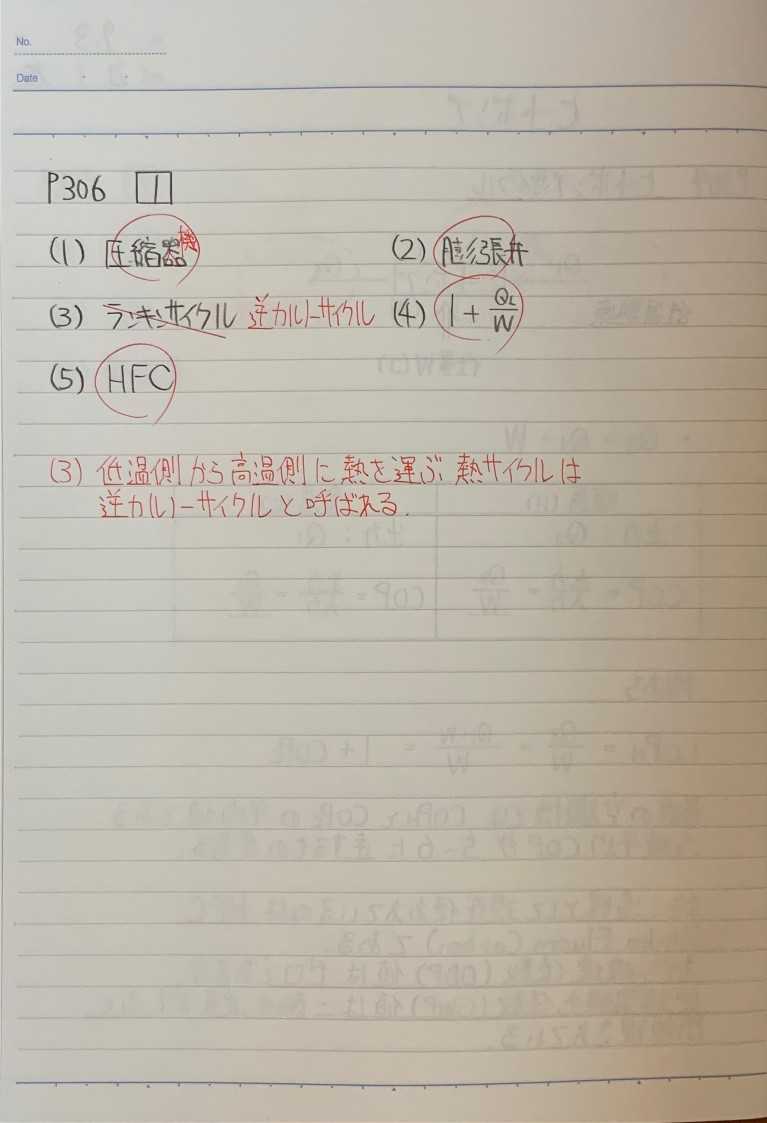 No.
Date
P306 1
(1) 圧縮器 機 (2) 膨張弁
(3) ランキンサイクル 逆カルノーサイクル (4) 1 + QL/W
(5) HFC
(3) 低温側から高温側に熱を運ぶ熱サイクルは
逆カルノーサイクルと呼ばれる.